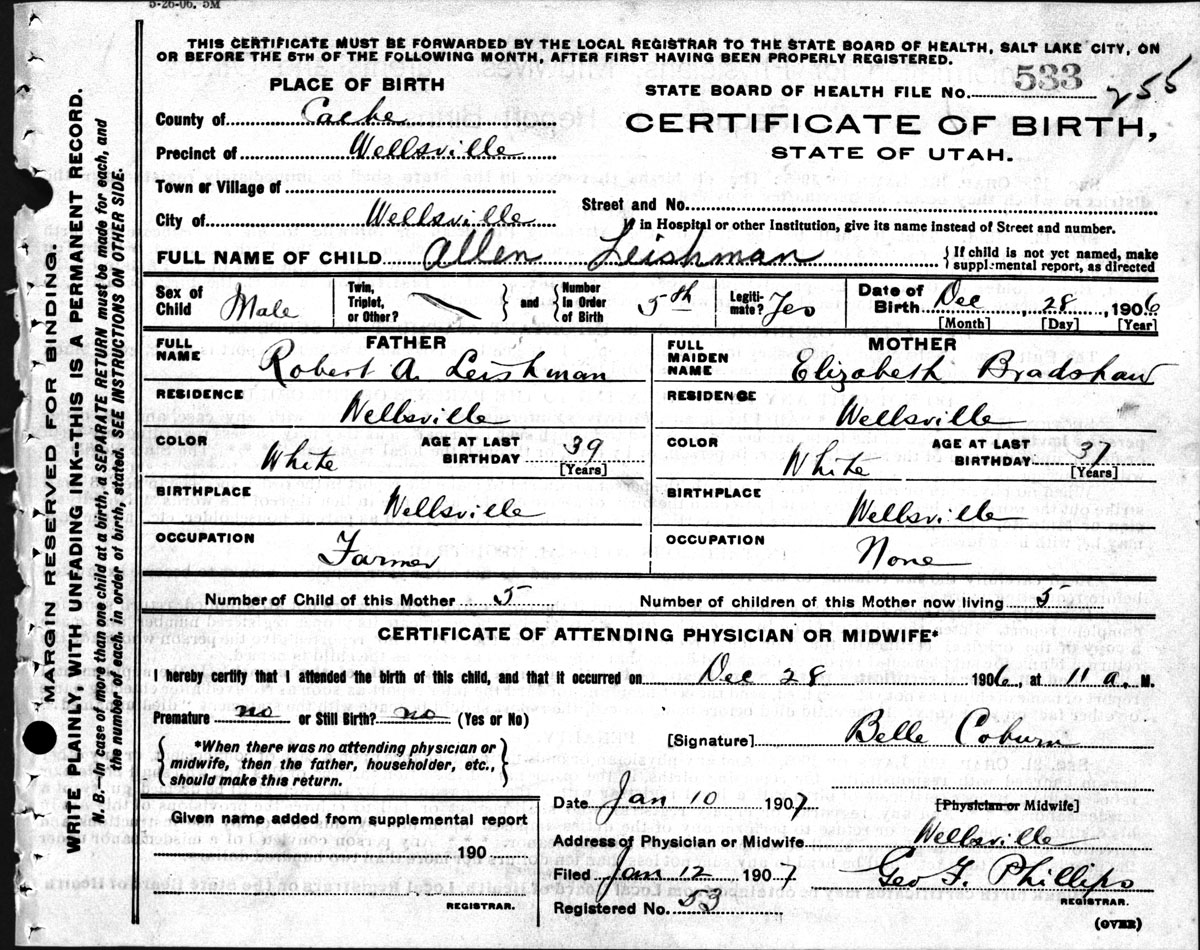 5-26-06. 5M
THIS CERTIFICATE MUST BE FORWARDED BY THE LOCAL REGISTRAR TO THE STATE BOARD OF HEALTH, SALT LAKE CITY, ON
OR BEFORE THE 5TH OF THE FOLLOWING MONTH, AFTER FIRST HAVING BEEN PROPERLY REGISTERED.
PLACE OF BIRTH
STATE BOARD OF HEALTH FILE No. 533 255
County of Cache
CERTIFICATE OF BIRTH,
STATE OF UTAH.
Precinct of Wellsville
Town or Village of
Street and No.
City of Wellsville
If in Hospital or other Institution, give its name instead of Street and number.
FULL NAME OF CHILD Allen Leishman {If child is not yet named, make
supplemental report, as directed
Sex of Child Male
Twin, Triplet, or Other? } and { Number in Order of Birth 5th
Legitimate? Yes
Date of Birth Dec, 28, 1906
[Month] [Day] [Year]
FATHER
FULL NAME Robert A. Leishman
RESIDENCE Wellsville
COLOR White AGE AT LAST BIRTHDAY 39
[Years]
BIRTHPLACE Wellsville
OCCUPATION Farmer
MOTHER
FULL MAIDEN NAME Elizabeth Bradshaw
RESIDENCE Wellsville
COLOR White AGE AT LAST BIRTHDAY 37
[Years]
BIRTHPLACE Wellsville
OCCUPATION None
Number of Child of this Mother 5 Number of children of this Mother now living 5
CERTIFICATE OF ATTENDING PHYSICIAN OR MIDWIFE*
I hereby certify that I attended the birth of this child, and that it occurred on Dec 28 1906, at 11 a. M.
Premature no or Still Birth? no (Yes or No)
{*When there was no attending physician or
midwife, then the father, householder, etc.,
should make this return.}
[Signature] Belle Coburn
[Physician or Midwife]
Date Jan 10 1907
Given name added from supplemental report
190
REGISTRAR.
Address of Physician or Midwife Wellsville
Filed Jan 12 1907 Geo F. Phillips
REGISTRAR.
Registered No. 53
(OVER)
MARGIN RESERVED FOR BINDING.
WRITE PLAINLY, WITH UNFADING INK--THIS IS A PERMANENT RECORD.
N. B.—In case of more than one child at a birth, a SEPARATE RETURN must be made for each, and
the number of each, in order of birth, stated. SEE INSTRUCTIONS ON OTHER SIDE.